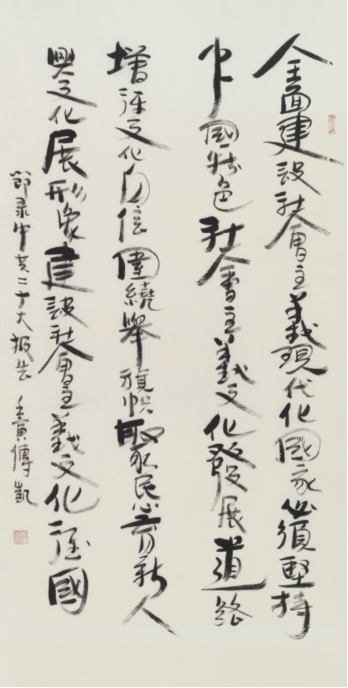 全面建設社會主義現代化國家必須堅持
中國特色社會主義文化發展道路
增强文化自信圍繞舉旗幟聚民心育新人
興文化展形象建設社會主義文化强國
節录中共二十大报告 壬寅 凱